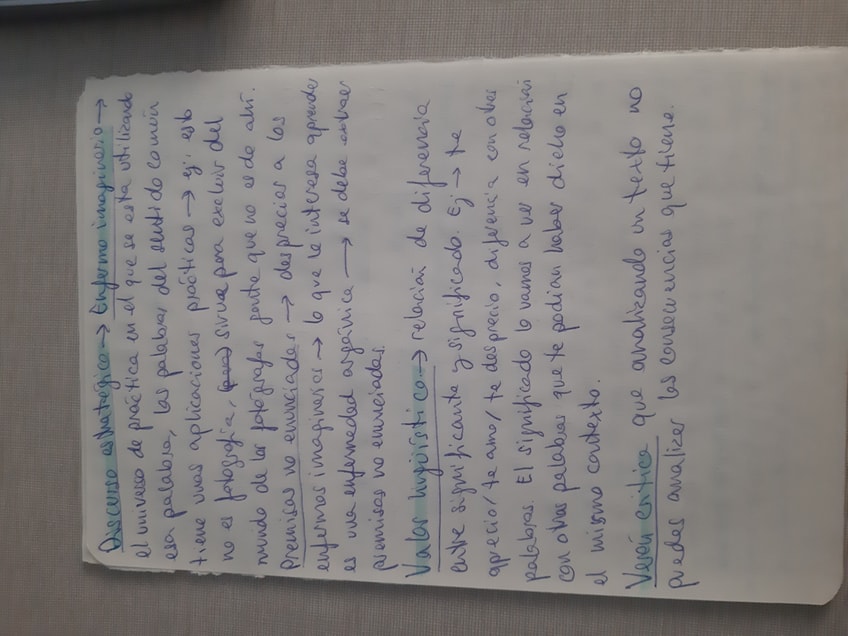 Discurso estratégico → Enfermo imaginario →
el universo de práctica en el que se está utilizando
esa palabra, las palabras del sentido común
tiene unas aplicaciones prácticas → ej: esto
no es fotografía, sirve para excluir del
mundo de los fotógrafos gente que no es de ahí.
Premisas no enunciadas → desprecias a los
enfermos imaginarios → lo que le interesa aprender
es una enfermedad orgánica → se debe extraer
premisas no enunciadas.
Valor lingüístico → relación de diferencia
entre significante y significado. Ej → te
aprecio/te amo/te desprecio, diferencia con otras
palabras. El significado lo vamos a ver en relación
con otras palabras que te podían haber dicho en
el mismo contexto.
Verón critica que analizando un texto no
puedes analizar las consecuencias que tiene.